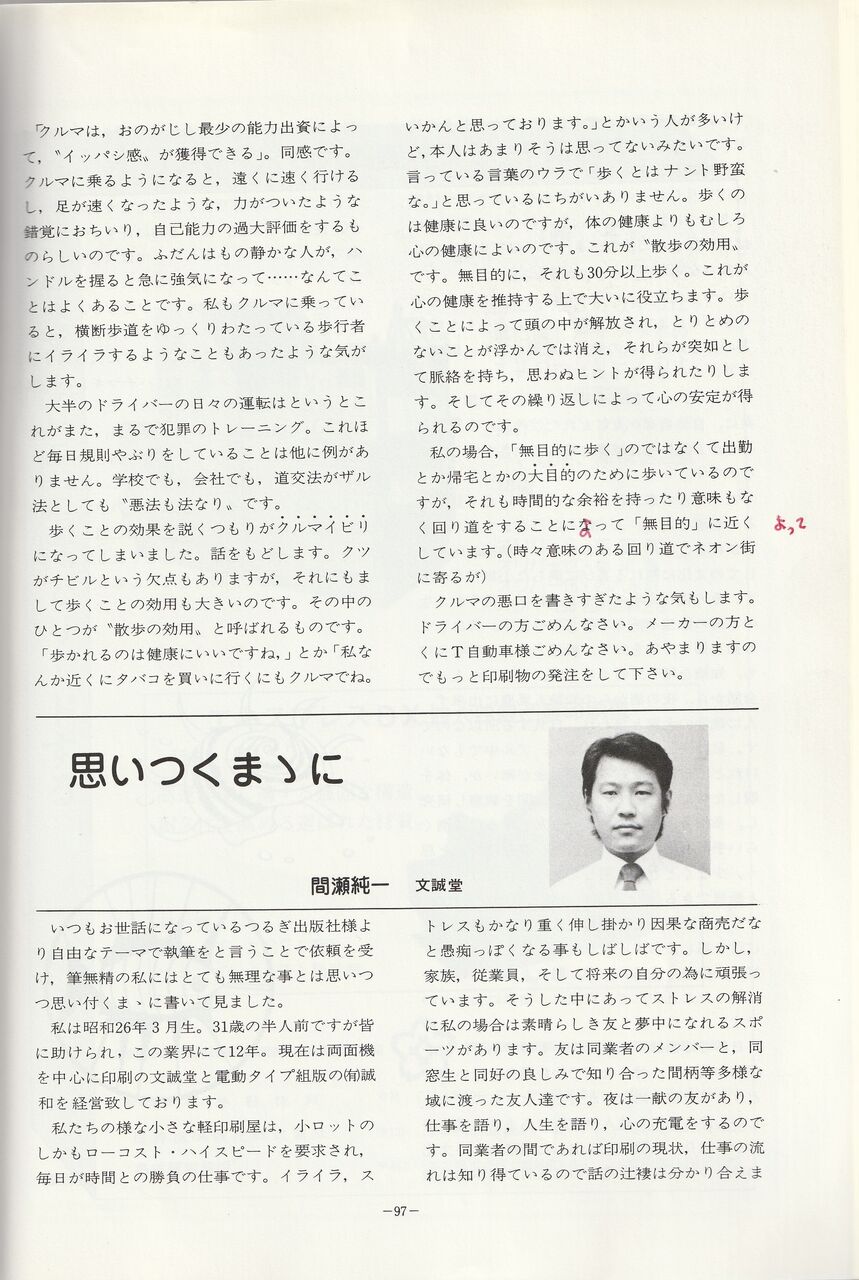 「クルマは，おのがじし最少の能力出資によっ
て，〝イッパシ感〟が獲得できる」。同感です。
クルマに乗るようになると，遠くに速く行ける
し，足が速くなったような，力がついたような
錯覚におちいり，自己能力の過大評価をするも
のらしいのです。ふだんはもの静かな人が，ハ
ンドルを握ると急に強気になって……なんてこ
とはよくあることです。私もクルマに乗ってい
ると，横断歩道をゆっくりわたっている歩行者
にイライラするようなこともあったような気が
します。
大半のドライバーの日々の運転はというとこ
れがまた，まるで犯罪のトレーニング。これほ
ど毎日規則やぶりをしていることは他に例があ
りません。学校でも，会社でも，道交法がザル
法としても〝悪法も法なり〟です。
歩くことの効果を説くつもりがクルマイビリ
になってしまいました。話をもどします。クツ
がチビルという欠点もありますが，それにもま
して歩くことの効用も大きいのです。その中の
ひとつが〝散歩の効用〟と呼ばれるものです。
「歩かれるのは健康にいいですね，」とか「私な
んか近くにタバコを買いに行くにもクルマでね。
いかんと思っております。」とかいう人が多いけ
ど，本人はあまりそうは思ってないみたいです。
言っている言葉のウラで「歩くとはナント野蛮
な。」と思っているにちがいありません。歩くの
は健康に良いのですが，体の健康よりもむしろ
心の健康によいのです。これが〝散歩の効用〟
です。無目的に，それも30分以上歩く。これが
心の健康を推持する上で大いに役立ちます。歩
くことによって頭の中が解放され，とりとめの
ないことが浮かんでは消え，それらが突如とし
て脈絡を持ち，思わぬヒントが得られたりしま
す。そしてその繰り返しによって心の安定が得
られるのです。
私の場合，「無目的に歩く」のではなくて出勤
とか帰宅とかの大目的のために歩いているので
すが，それも時間的な余裕を持ったり意味もな
く回り道をすることになって「無目的」に近く
よ
よって
しています。（時々意味のある回り道でネオン街
に寄るが）
クルマの悪口を書きすぎたような気もします。
ドライバーの方ごめんなさい。メーカーの方と
くにＴ自動車様ごめんなさい。あやまりますの
でもっと印刷物の発注をして下さい。
思いつくまゝに
間瀬純一　文誠堂
いつもお世話になっているつるぎ出版社様よ
り自由なテーマで執筆をと言うことで依頼を受
け，筆無精の私にはとても無理な事とは思いつ
つ思い付くまゝに書いて見ました。
私は昭和26年３月生。31歳の半人前ですが皆
に助けられ，この業界にて12年。現在は両面機
を中心に印刷の文誠堂と電動タイプ組版の㈲誠
和を経営致しております。
私たちの様な小さな軽印刷屋は，小ロットの
しかもローコスト・ハイスピードを要求され，
毎日が時間との勝負の仕事です。イライラ，ス
トレスもかなり重く伸し掛かり因果な商売だな
と愚痴っぽくなる事もしばしばです。しかし，
家族，従業員，そして将来の自分の為に頑張っ
ています。そうした中にあってストレスの解消
に私の場合は素晴らしき友と夢中になれるスポ
ーツがあります。友は同業者のメンバーと，同
窓生と同好の良しみで知り合った間柄等多様な
域に渡った友人達です。夜は一献の友があり，
仕事を語り，人生を語り，心の充電をするので
す。同業者の間であれば印刷の現状，仕事の流
れは知り得ているので話の辻褄は分かり合えま
—97—